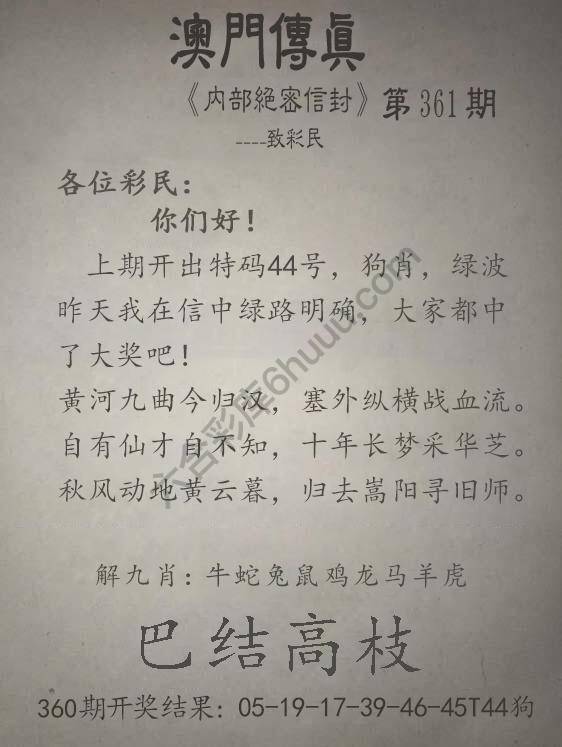 澳門傳眞
《内部絕密信封》第361期
----致彩民
各位彩民：
你们好！
上期开出特码44号，狗肖，绿波
昨天我在信中绿路明确，大家都中
了大奖吧！
黄河九曲今归汉，塞外纵横战血流。
自有仙才自不知，十年长梦采华芝。
秋风动地黄云暮，归去嵩阳寻旧师。
解九肖：牛蛇兔鼠鸡龙马羊虎
巴结高枝
360期开奖结果：05-19-17-39-46-45T44狗
六合彩库6huuu.com